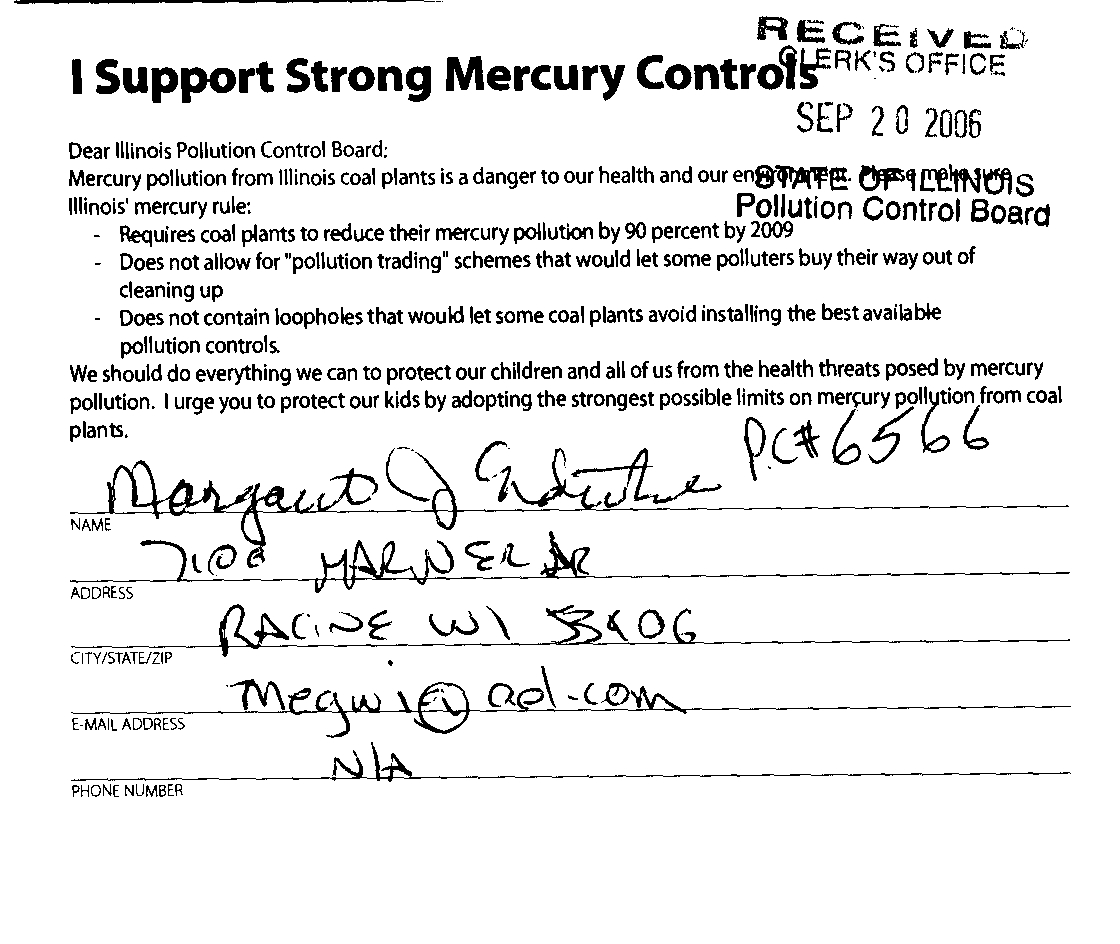 RECEIVED
CLERK'S OFFICE
I Support Strong Mercury Controls
SEP 20 2006
STATE OF ILLINOIS
Pollution Control Board
Dear Illinois Pollution Control Board:
Mercury pollution from Illinois coal plants is a danger to our health and our environment. Please make sure
Illinois' mercury rule:
- Requires coal plants to reduce their mercury pollution by 90 percent by 2009
- Does not allow for "pollution trading" schemes that would let some polluters buy their way out of
cleaning up
- Does not contain loopholes that would let some coal plants avoid installing the best available
pollution controls.
We should do everything we can to protect our children and all of us from the health threats posed by mercury
pollution. I urge you to protect our kids by adopting the strongest possible limits on mercury pollution from coal
plants.
P.C# 6566
Margaret J
NAME
MARINER DR
ADDRESS
RACINE WI 53406
CITY/STATE/ZIP
Megwi@aol.com
E-MAIL ADDRESS
N/A
PHONE NUMBER